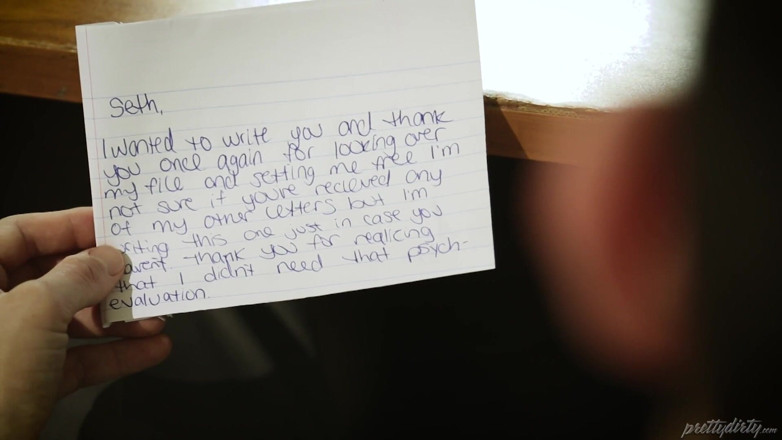 Seth,
I wanted to write you and thank
you once again for looking over
my file and setting me free I'm
not sure if you're recieved any
of my other letters but I'm
this one just in case you
thank you for realicing
that I didn't need that psych-
evaluation
prettydirty.com